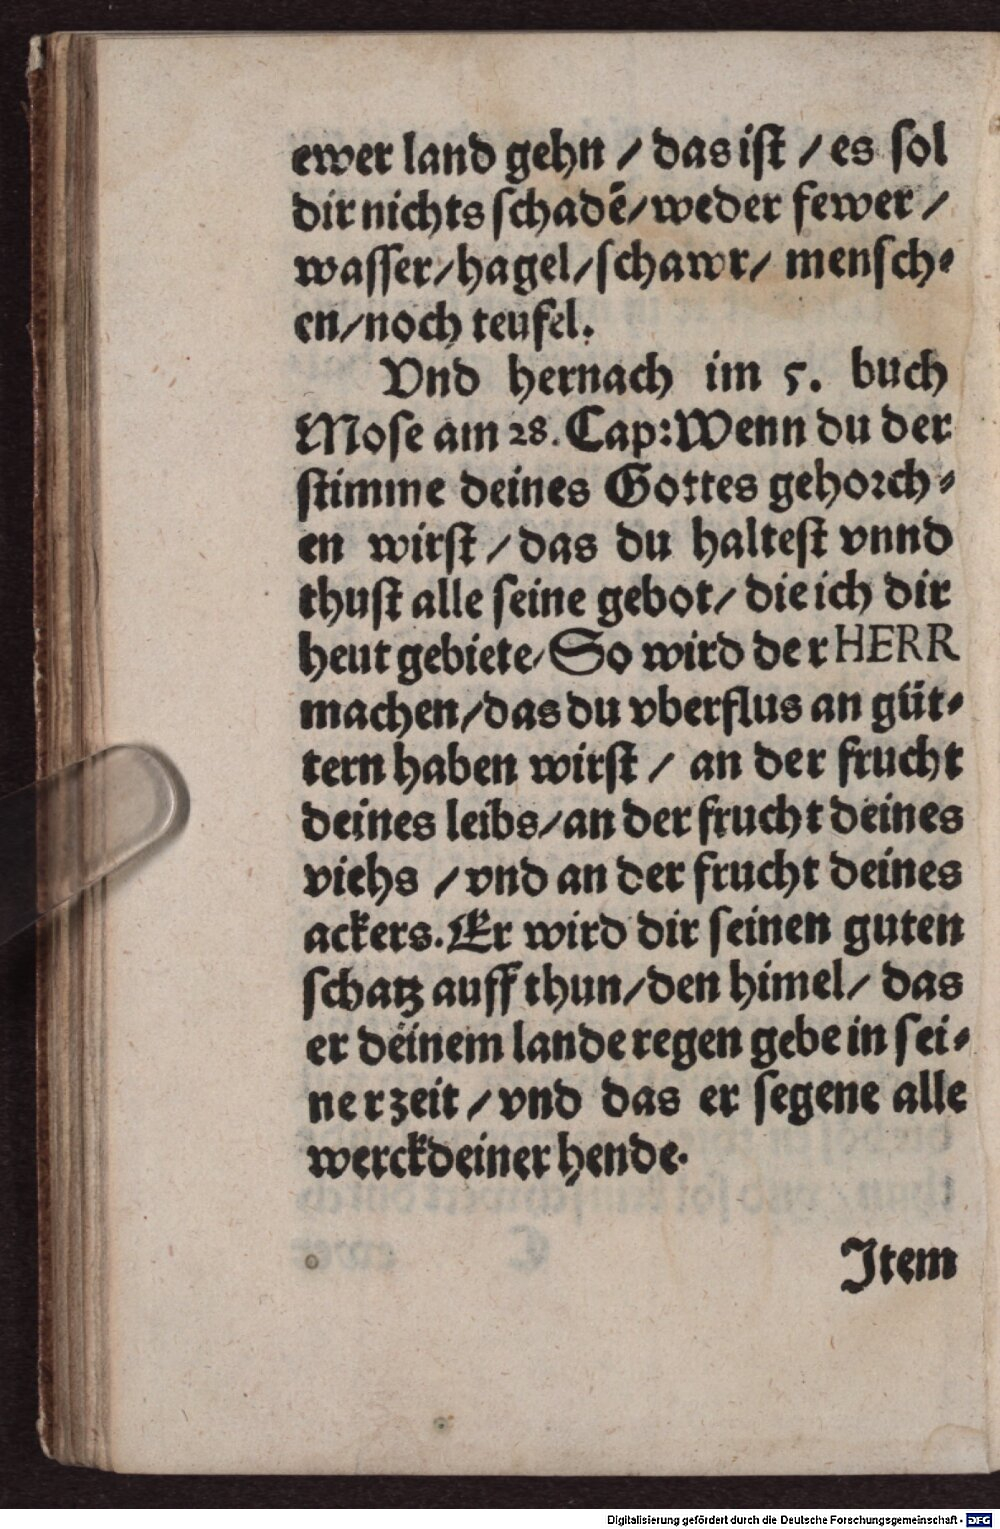 ewer land gehn / das ist / es sol
dir nichts schadē/weder fewer /
wasser/hagel/schawr/ mensch⸗
en/noch teufel.
Vnd hernach im 5. buch
Mose am 28. Cap: Wenn du der
stimme deines Gottes gehorch⸗
en wirst / das du haltest vnnd
thust alle seine gebot/ die ich dir
heut gebiete/ So wird der HERR
machen/das du vberflus an güt⸗
tern haben wirst / an der frucht
deines leibs/an der frucht deines
viehs /vnd an der frucht deines
ackers. Er wird dir seinen guten
schatz auff thun/den himel/ das
er deinem lande regen gebe in sei⸗
ner zeit /vnd das er segene alle
werck deiner hende.
Item
Digitalisierung gefördert durch die Deutsche Forschungsgemeinschaft - DFG